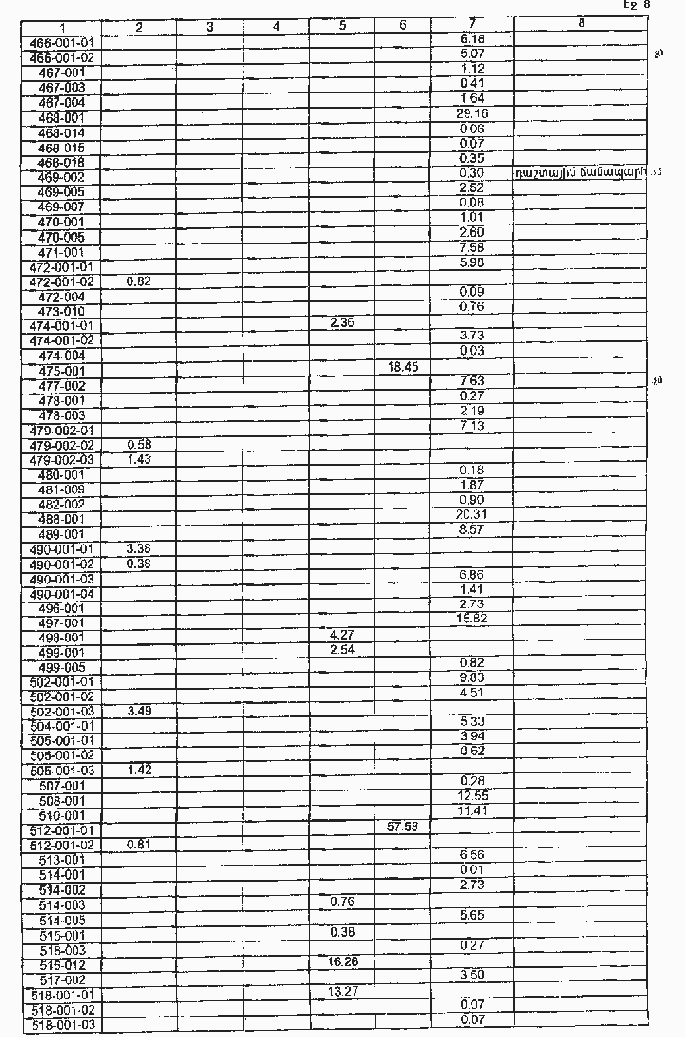 Էջ 8
1 2 3 4 5 6 7 8
466-001-01 6.18
466-001-02 5.07
467-001 1.12
467-003 0.41
467-004 1.64
468-001 29.16
468-014 0.06
468-015 0.07
468-018 0.35
469-002 0.30 դաշտային ճանապարհ
469-005 2.52
469-007 0.08
470-001 1.01
470-005 2.60
471-001 7.58
472-001-01 5.98
472-001-02 0.82
472-004 0.09
473-010 0.76
474-001-01 2.36
474-001-02 3.73
474-004 0.03
475-001 18.45
477-002 7.63
478-001 0.27
478-003 2.19
479-002-01 7.13
479-002-02 0.58
479-002-03 1.43
480-001 0.18
481-009 1.87
482-002 0.90
488-001 20.31
489-001 8.57
490-001-01 3.36
490-001-02 0.38
490-001-03 6.86
490-001-04 1.41
496-001 2.73
497-001 15.82
498-001 4.27
499-001 2.54
499-005 0.82
502-001-01 9.83
502-001-02 4.51
502-001-03 3.49
504-001-01 5.33
505-001-01 3.94
505-001-02 0.62
505-001-03 1.42
507-001 0.28
508-001 12.55
510-001 11.41
512-001-01 57.59
512-001-02 0.81
513-001 6.56
514-001 0.01
514-002 2.73
514-003 0.76
514-005 5.65
515-001 0.38
515-003 0.27
515-012 16.26
517-002 3.50
518-001-01 13.27
518-001-02 0.07
518-001-03 0.07